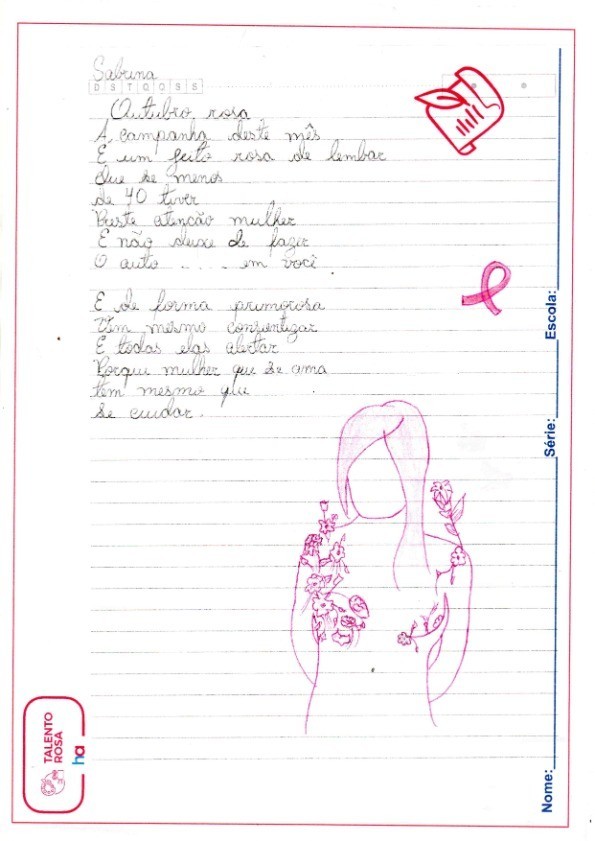 Sabrina
D S T Q Q S S
Outubro rosa
A campanha deste mês
E um feito rosa de lembar
Que se menos
de 40 tiver
Preste atenção mulher
E não deixe de fazer
O auto ..... em você
E de forma primorosa
Vem mesmo consentizar
E todas elas alertar
Porque mulher que se ama
tem mesmo que
se cuidar.
Nome: Série: Escola:
TALENTO
ROSA
ha